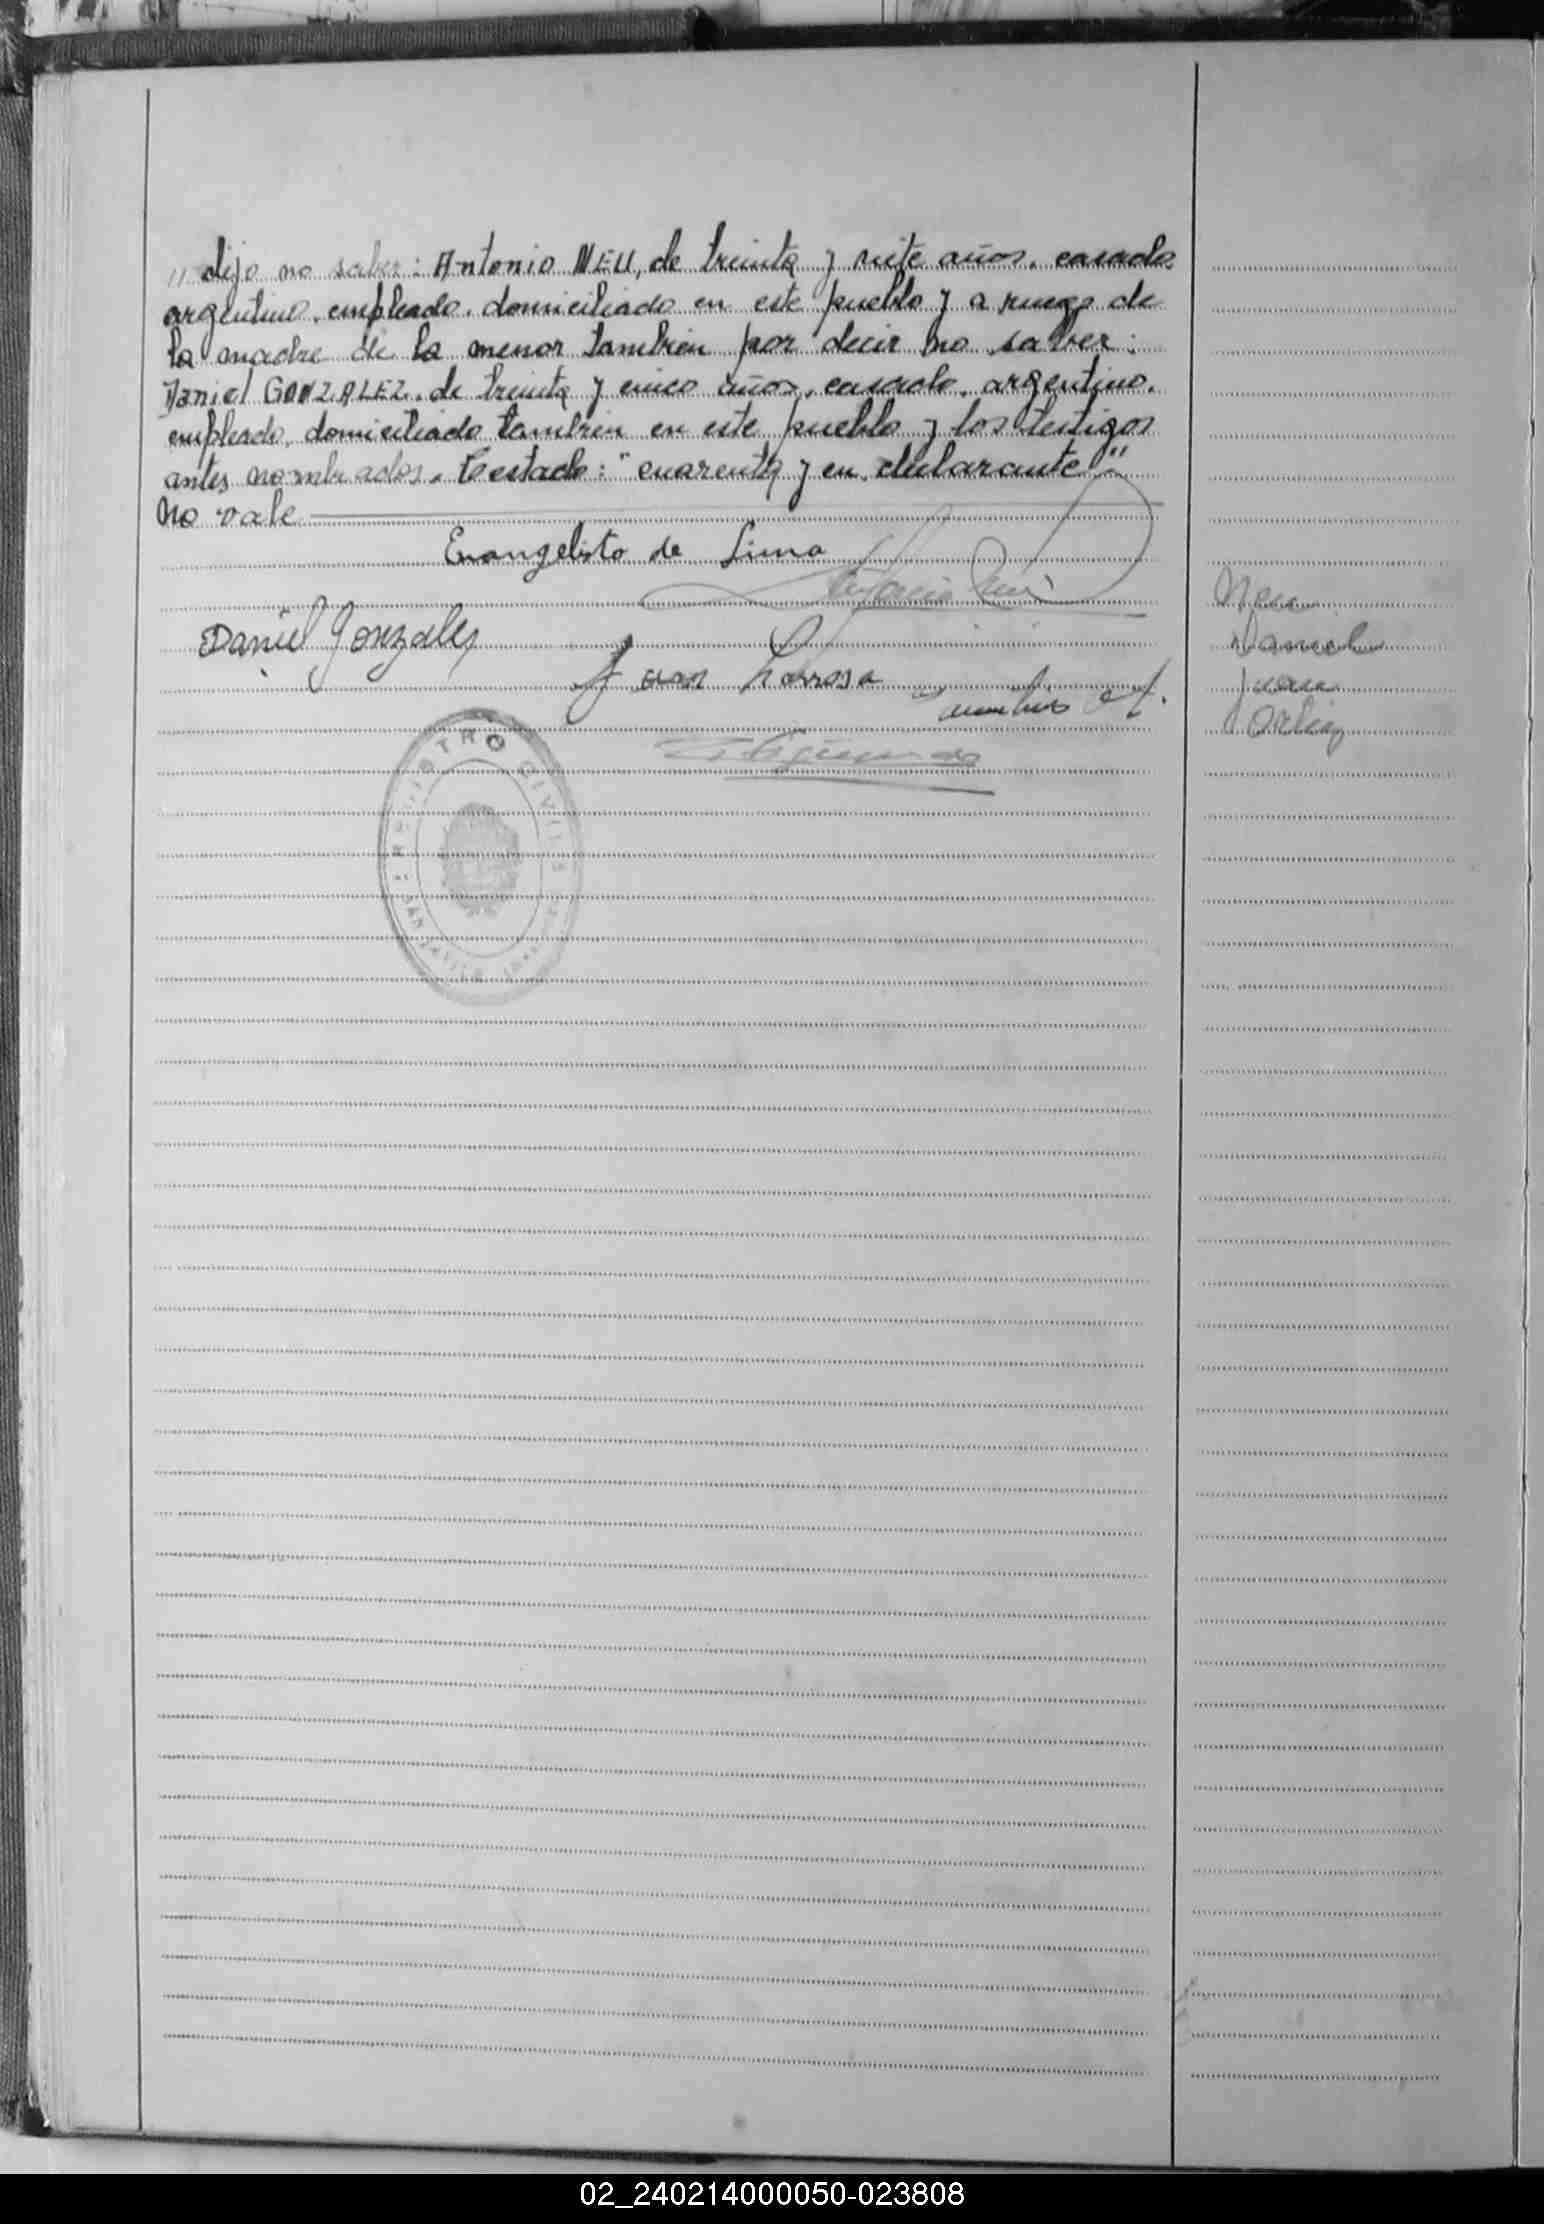 "dijo no saber: Antonio NEU, de treinta y siete años, casado,
argentino, empleado, domiciliado en este pueblo y a ruego de
la madre de la menor también por decir no saber:
Daniel GONZALEZ, de treinta y cinco años, casado, argentino,
empleado, domiciliado también en este pueblo y los testigos
antes nombrados. Testado: "cuarenta y en declarante"
No vale
Evangelisto de Lima
Antonio Neu
Neu
Daniel Gonzalez
Daniel
Juan Larrosa
Juan
Ortiz
REGISTRO CIVIL
02_240214000050-023808